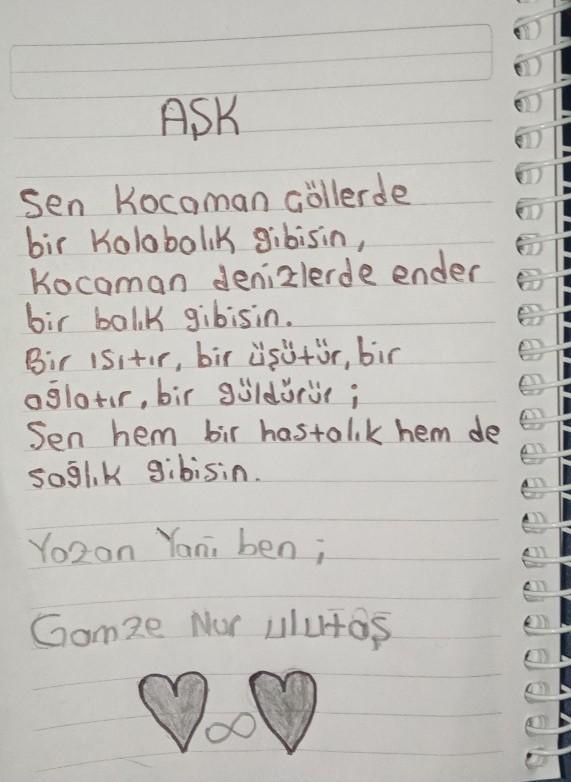 AŞK
Sen Kocaman Göllerde
bir Kalabalık gibisin,
Kocaman denizlerde ender
bir balık gibisin.
Bir ısıtır, bir üşütür, bir
ağlatır, bir güldürür;
Sen hem bir hastalık hem de
sağlık gibisin.
Yazan Yani ben;
Gamze Nur Ulutaş